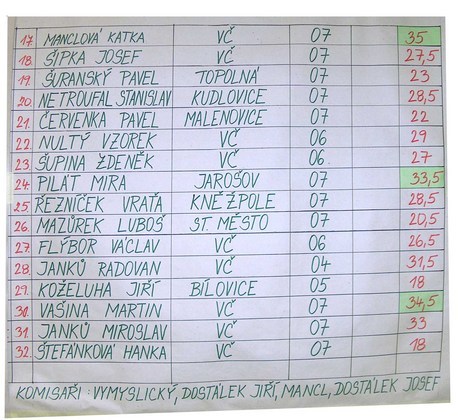 17. MANCLOVÁ KATKA VČ 07 35
18. ŠIPKA JOSEF VČ 07 27,5
19. ŠURANSKÝ PAVEL TOPOLNÁ 07 23
20. NETROUFAL STANISLAV KUDLOVICE 07 28,5
21. ČERVENKA PAVEL MALENOVICE 07 22
22. NULTÝ VZOREK VČ 06 29
23. ŠUPINA ZDENĚK VČ 06. 27
24. PILÁT MIRA JAROŠOV 07 33,5
25. ŘEZNÍČEK VRAŤA KNĚŽPOLE 07 28,5
26. MAZŮREK LUBOŠ ST. MĚSTO 07 20,5
27. FLÝBOR VÁCLAV VČ 06 26,5
28. JANKŮ RADOVAN VČ 04 31,5
29. KOŽELUHA JIŘÍ BÍLOVICE 05 18
30. VAŠINA MARTIN VČ 07 34,5
31. JANKŮ MIROSLAV VČ 07 33
32. ŠTEFÁNKOVÁ HANKA VČ 07 18
KOMISAŘI : VYMYSLICKÝ, DOSTÁLEK JIŘÍ, MANCL, DOSTÁLEK JOSEF